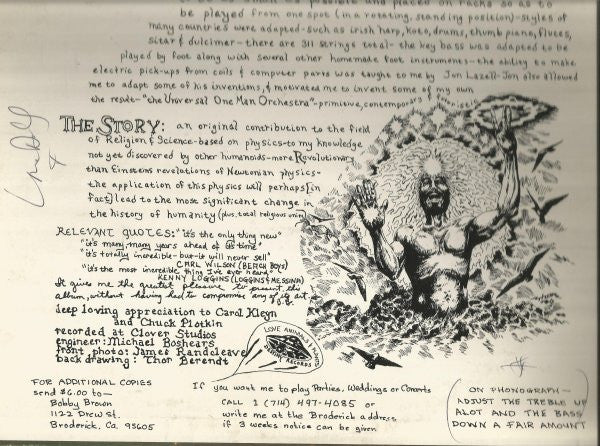 to be as small as possible and placed on racks so as to
be played from one spot (in a rotating, standing position)-styles of
many countries were adapted-such as irish harp, koto, drums, thumb piano, flutes,
sitar & dulcimer-there are 311 strings total-the key bass was adapted to be
played by foot along with several other homemade foot instruments-the ability to make
electric pick-ups from coils & computer parts was taught to me by Jon Lazell-Jon also allowed
me to adapt some of his inventions, & motivated me to invent some of my own
the result-"the Universal One Man Orchestra"-primitive, contemporary & futuristic
THE STORY: an original contribution to the field
of Religion & Science-based on physics-to my knowledge
not yet discovered by other humanoids-more Revolutionary
than Einsteins revelations of Newtonian physics-
the application of this physics will perhaps [in
fact] lead to the most significant change in
the history of humanity (plus, total religious
RELEVANT QUOTES: "it's the only thing new"
"it's many, many years ahead of its time"
"it's totally incredible-but-it will never sell"
CARL WILSON (BEACH BOYS)
"it's the most incredible thing I've ever heard"
KENNY LOGGINS (LOGGINS & MESSINA)
It gives me the greatest pleasure to present this
album, without having had to compromise any of its art
deep loving appreciation to Carol Kleyn
and Chuck Plotkin
recorded at Clover Studios
engineer: Michael Boshears
front photo: James Randcleave
back drawing: Thor Berendt
LOVE
RECORDS
FOR ADDITIONAL COPIES
send $6.00 to-
Bobby Brown
1122 Drew St.
Broderick, Ca. 95605
If you want me to play Parties, Weddings or Concerts
CALL 1 (714) 497-4085 or
write me at the Broderick address
if 3 weeks notice can be given
(ON PHONOGRAPH-
ADJUST THE TREBLE UP
ALOT AND THE BASS
DOWN A FAIR AMOUNT)